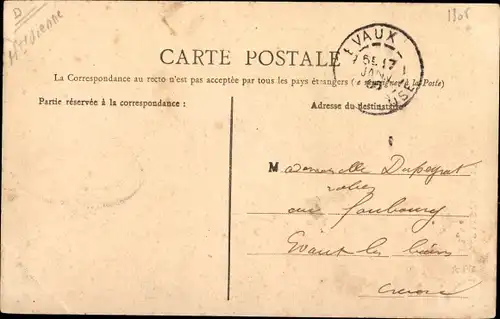 D
CARTE POSTALE
EVAUX
17
JANV
La Correspondance au recto n'est pas acceptée par tous les pays étrangers (se renseigner à la Poste)
Partie réservée à la correspondance :
Adresse du destinataire
Mademoiselle Dupeyrat
au faubourg
Evaux les bains
Creuse